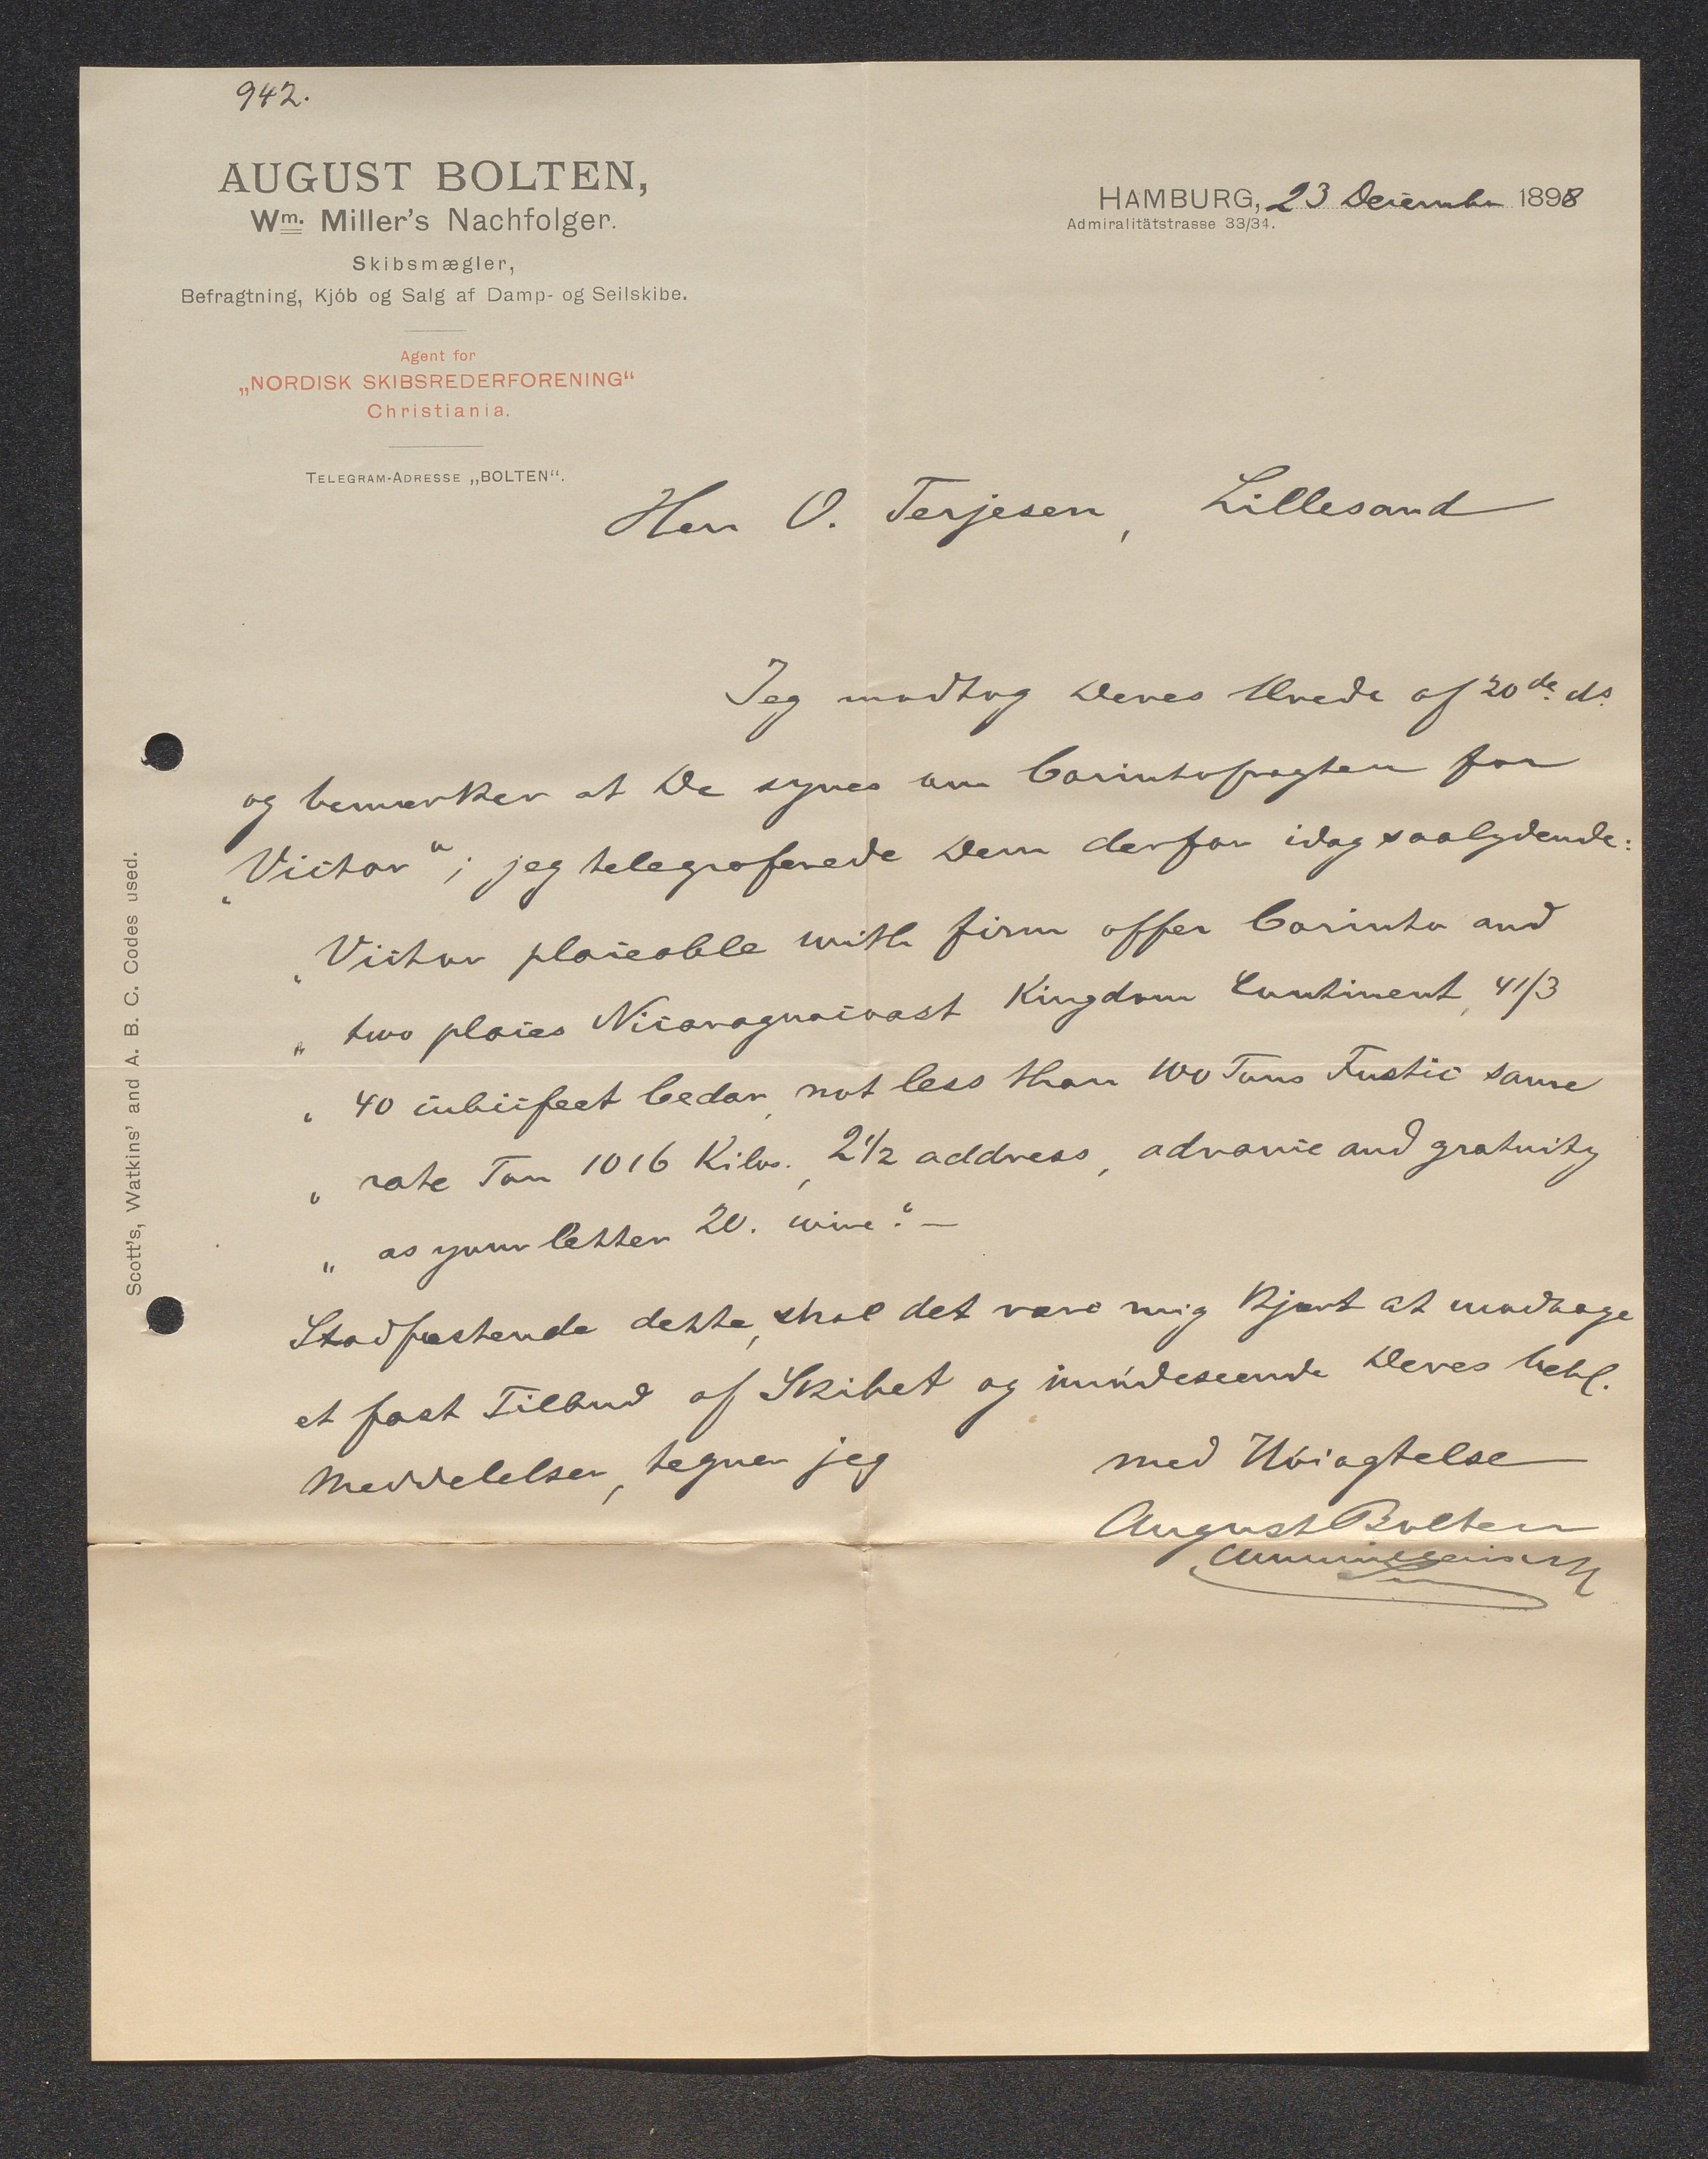 942.
AUGUST BOLTEN,
Wm. Miller's Nachfolger.
Skibsmægler,
Befragtning, Kjöb og Salg af Damp- og Seilskibe.
Agent for
„NORDISK SKIBSREDERFORENING“
Christiania.
TELEGRAM-ADRESSE „BOLTEN“.
HAMBURG, 23 December 1898
Admiralitätstrasse 33/34.
Scott's, Watkins' and A. B. C. Codes used.
Herr O. Terjesen, Lillesand
Jeg modtog Deres Ærede af 20de. ds.
og bemærker at De synes om Corintofragten for
„Victor“; jeg telegraferede Dem derfor idag saalydende:
„Victor placeable with firm offer Corinto and
„ two places Nicaraguacoast Kingdom Continent, 41/3
„ 40 cubicfeet Cedar, not less than 100 Tons Fustic same
„ rate Ton 1016 Kilos., 2½ address, advance and gratuity
„ as your letter 20. wire“. —
Stadfæstende dette, skal det være mig kjært at modtage
et fast Tilbud af Skibet og imødeseende Deres behl.
Meddelelser, tegner jeg
med Høiagtelse
August Bolten